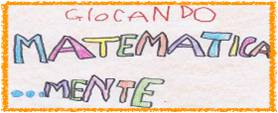 GIOCANDO
MATEMATICA
...MENTE